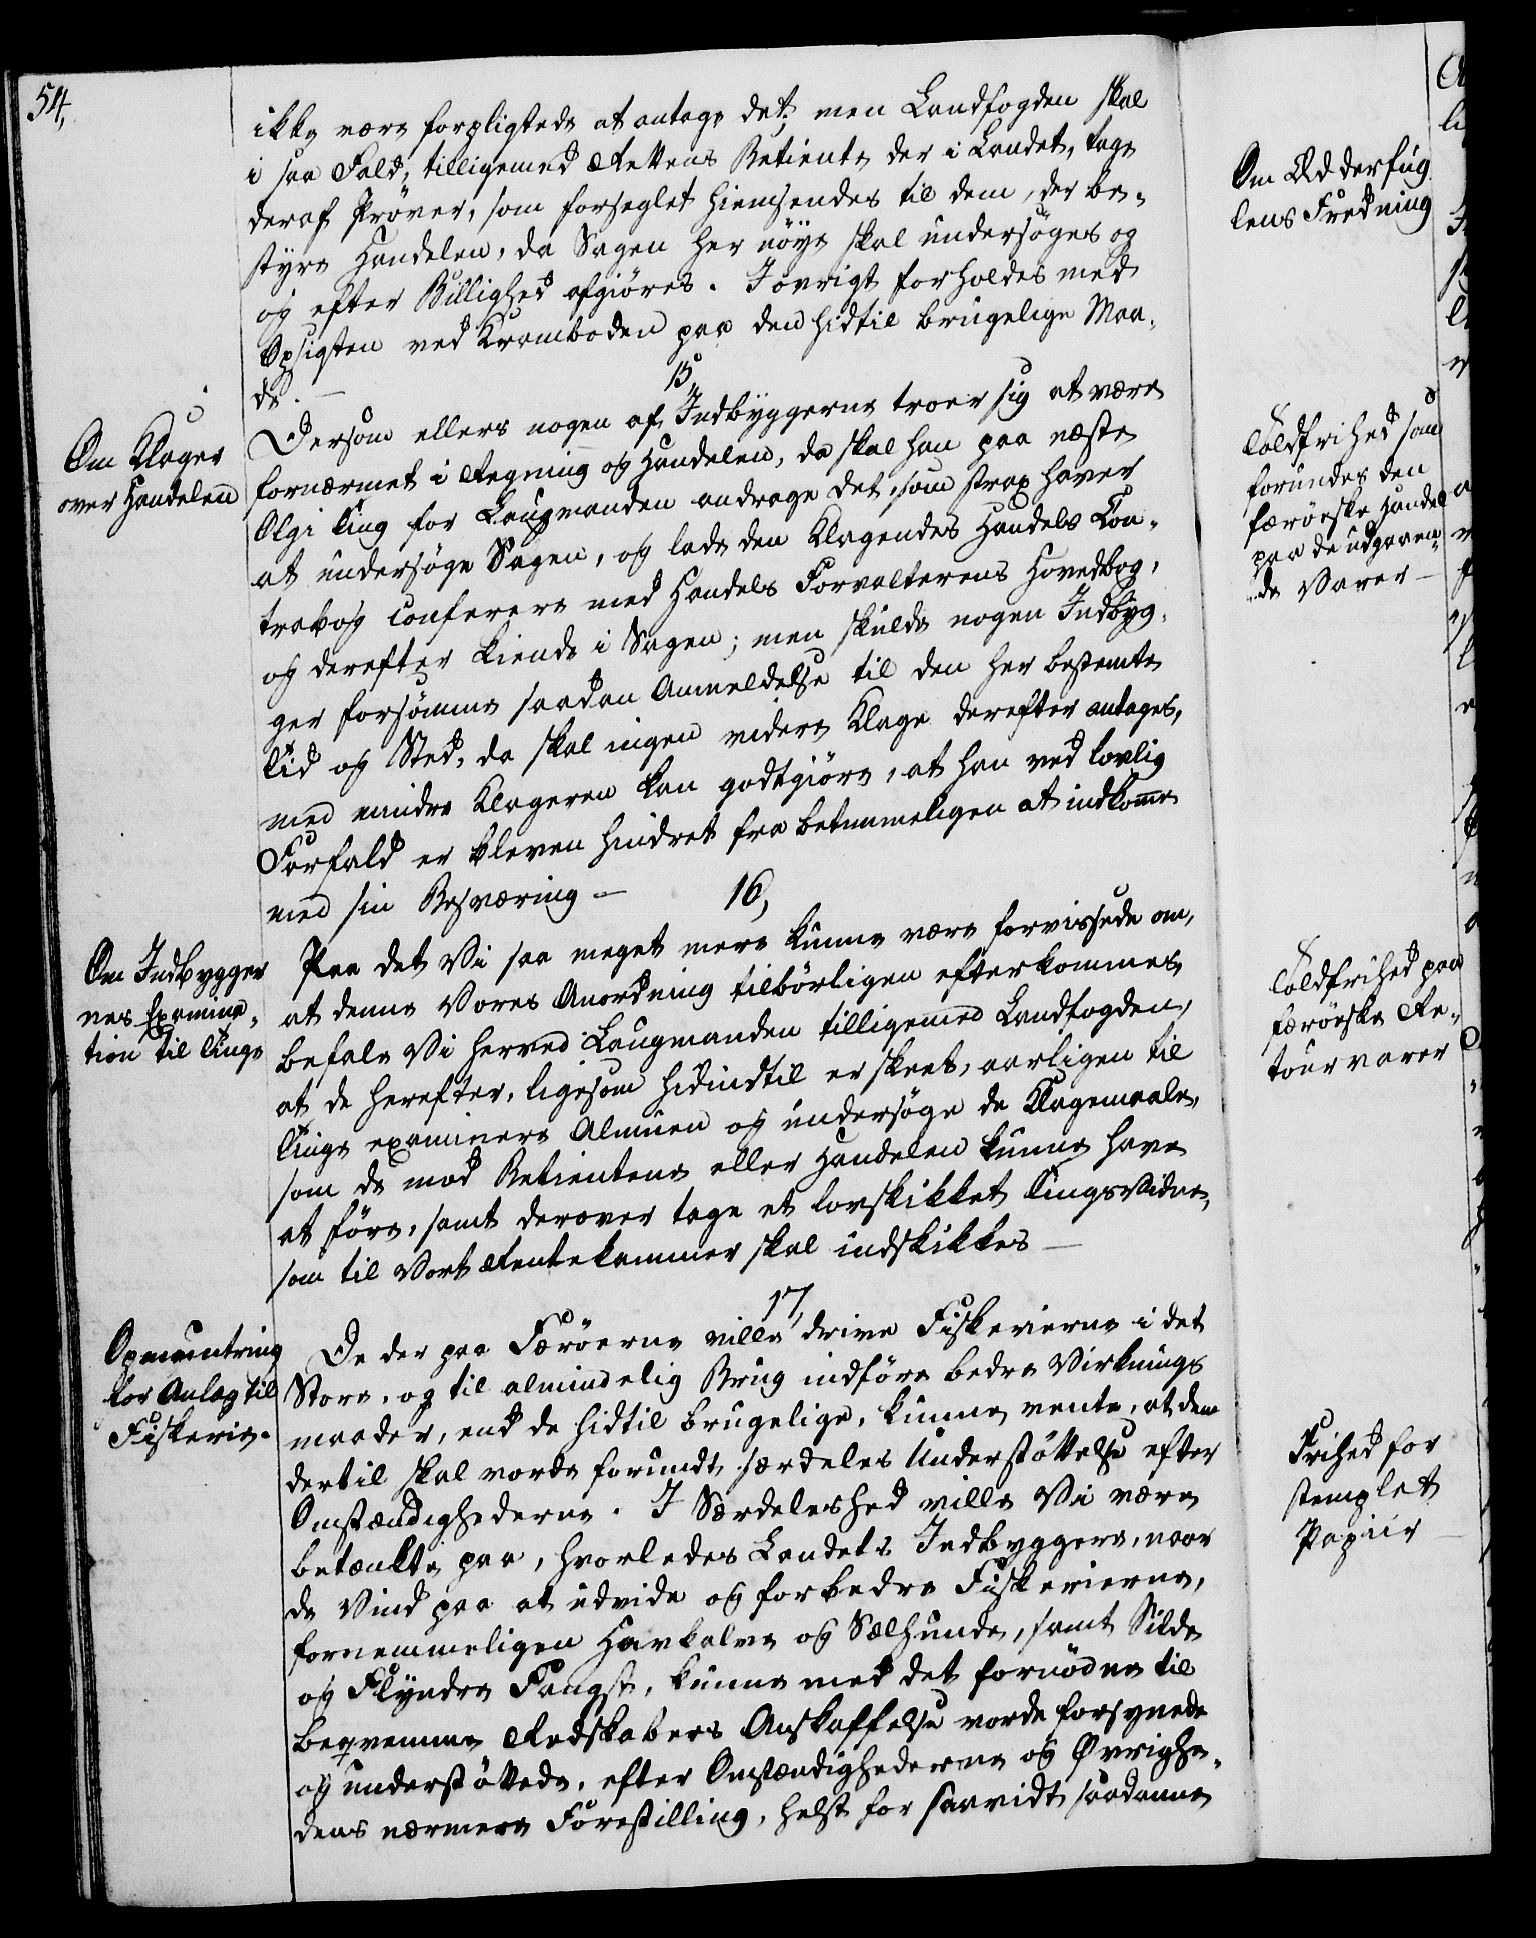 54,
ikke være forpligtede at antage det; men Landfogden skal
i saa Fald, tilligemed Rettens Betiente der i Landet, tage
deraf Prøver, som forseglet hiemsendes til dem, der be-
styre Handelen, da Sagen her nöye skal undersöges og
og efter Billighed afgiöres. I övrigt forholdes med
Opsigten ved Kramboden paa den hidtil brugelige Maa-
de. —
15,
Om Klager
over Handelen
Dersom ellers nogen af Indbyggerne troer sig at være
fornærmet i Regning og Handelen, da skal han paa næste
Olgi Ting for Laugmanden andrage det, som strax haver
at undersöge Sagen, og lade den Klagendes Handels Con-
trabog conferere med Handels Forvalterens Hovedbog,
og derefter kiende i Sagen; men skulde nogen Indbyg-
ger forsömme saadan Anmeldelse til den her bestemte
Tid og Sted, da skal ingen videre Klage derefter antages,
med mindre Klageren kan godtgiöre, at han ved lovlig
Forfald er bleven hindret fra betimmeligen at indkomme
med sin Besværing —
16,
Om Indbygger
nes Examina-
tion til Tinge
Paa det Vi saa meget mere kunne være forvissede om,
at denne Vores Anordning tilbörligen efterkommes,
befale Vi herved Laugmanden tilligemed Landfogden,
at de herefter, ligesom hidindtil er skeet, aarligen til
Tinge examinere Almuen og undersöge de Klagemaale,
som de mod Betientene eller Handelen kunne have
at före, samt derover tage et lovskikket Tingsvidne,
som til Vort Rentekammer skal indskikkes —
17,
Opmuntring
for Anlæg til
Fiskerie.
De der paa Færöerne ville drive Fiskerierne i det
Store, og til almindelig Brug indföre bedre Virknings
maader, end de hidtil brugelige, kunne vente, at dem
dertil skal vorde forundt særdeles Understöttelse efter
Omstændighederne. I Særdeleshed ville Vi være
betænkte paa, hvorledes Landets Indbyggere, naar
de Vind paa at udvide og forbedre Fiskerierne,
fornemmeligen Havkalve og Sælhunde, samt Silde
og Flyndre Fangst, kunne med det fornödne til
beqvemme Redskabers Anskaffelse vorde forsynede
og understöttede, efter Omstændighederne og Øvrighe-
dens nærmere Forestilling, helst for saavidt saadanne
Om Edderfug
lens Fredning
Toldfrihed som
forundes den
færöeske Handel
paa de udgaaen-
de Varer —
Toldfrihed paa
færöeske Re-
tour varer
Frihed for
stemplet
Papiir —